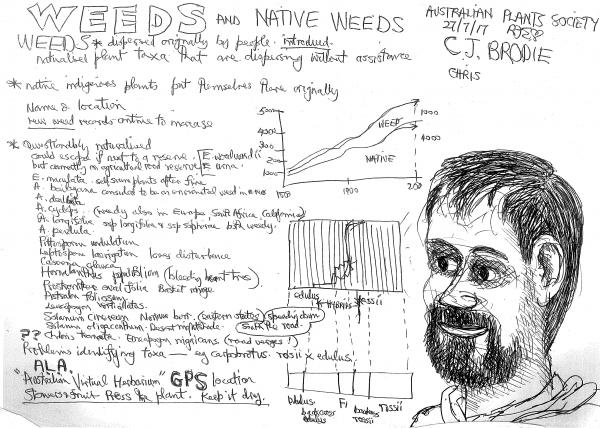 WEEDS AND NATIVE WEEDS
WEEDS * dispersed originally by people. introduced.
naturalised plant taxa that are dispersing without assistance
* native indigenous plants put themselves there originally
Name & location
New weed records continue to increase
* Questionably naturalised
could escape if next to a reserve. E. woodwardii
but correctly on agricultural road reserve
E. maculata self sown plants after fire
A. baileyana considered to be an environmental weed in
A. dealbata
A. cyclops. (weedy also in Europe, South Africa, California)
A. longifolia ssp longifolia & ssp sophorae both weedy.
A. pendula.
Pittosporum undulatum
Leptospermum laevigatum loves disturbance
Casuarina glauca
Homalanthus populifolius (bleeding heart tree)
Prostanthera ovalifolia
Solanum cinereum Narrawa burr. (eastern states) (spreading down
Solanum oligacanthum. Desert nightshade. South the road.
?? Chloris truncata. Enneapogon nigricans (road verges!)
Problems identifying taxa — eg Carpobrotus. rossii x edulus.
ALA.
"Australian Virtual Herbarium" GPS location
Stems & fruit Press the plant. Keep it dry.
AUSTRALIAN PLANTS SOCIETY
27/7/17
C.J. BRODIE
CHRIS
5000
4000
3000
2000
1000
WEED
NATIVE
1000
4000
1900
edulus
HYBRIDS
rossii
edulus
F1
rossii
rossii
edulus